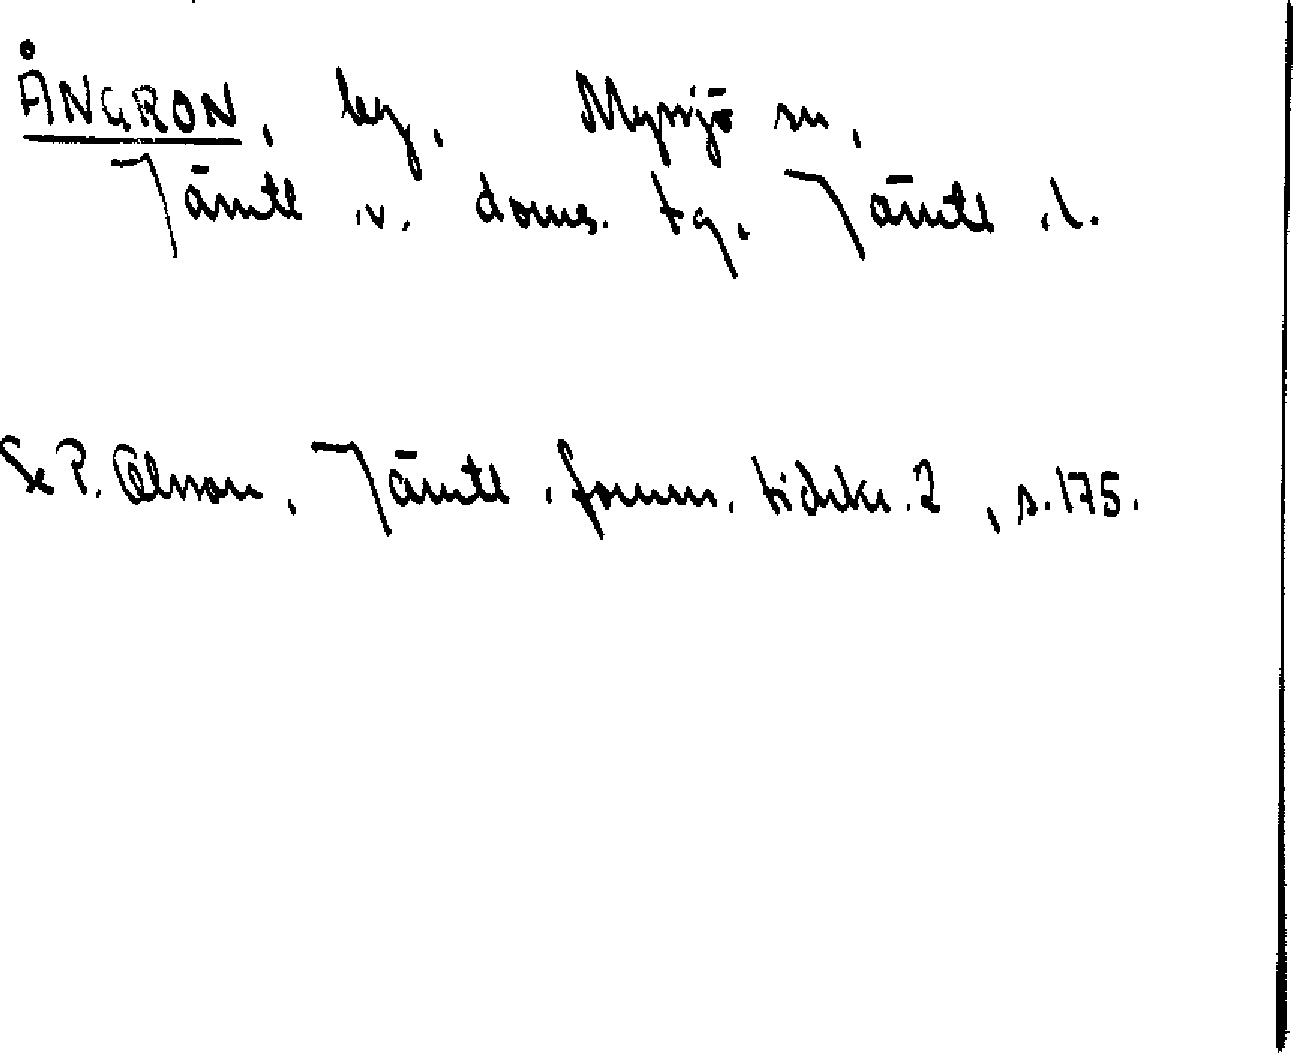 ÅNGRON, by, Myssjö sn,
Jämtl.v. doms. tg. Jämtl.l.
Se P. Olsson, Jämtl. fornm. tidskr. 2, s. 175.